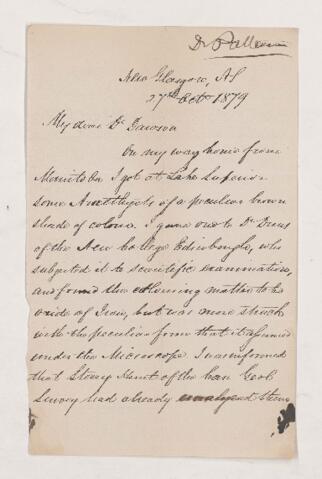 Dr Patterson
New Glasgow, NS
27th Octr 1879
My dear Dr Dawson
On my way home from
Manitoba I got at Lake Superior
some Amethysts of a peculiar brown
shade of colour. I gave one to Dr
of the New College Edinburgh, who
subjected it to scientific examination,
and found the colouring matter to be
oxide of Iron, but was more struck
with the peculiar form that it assumed
under the Microscope. I was informed
that Sterry Hunt of the Can Geol
Survey had already analyzed them